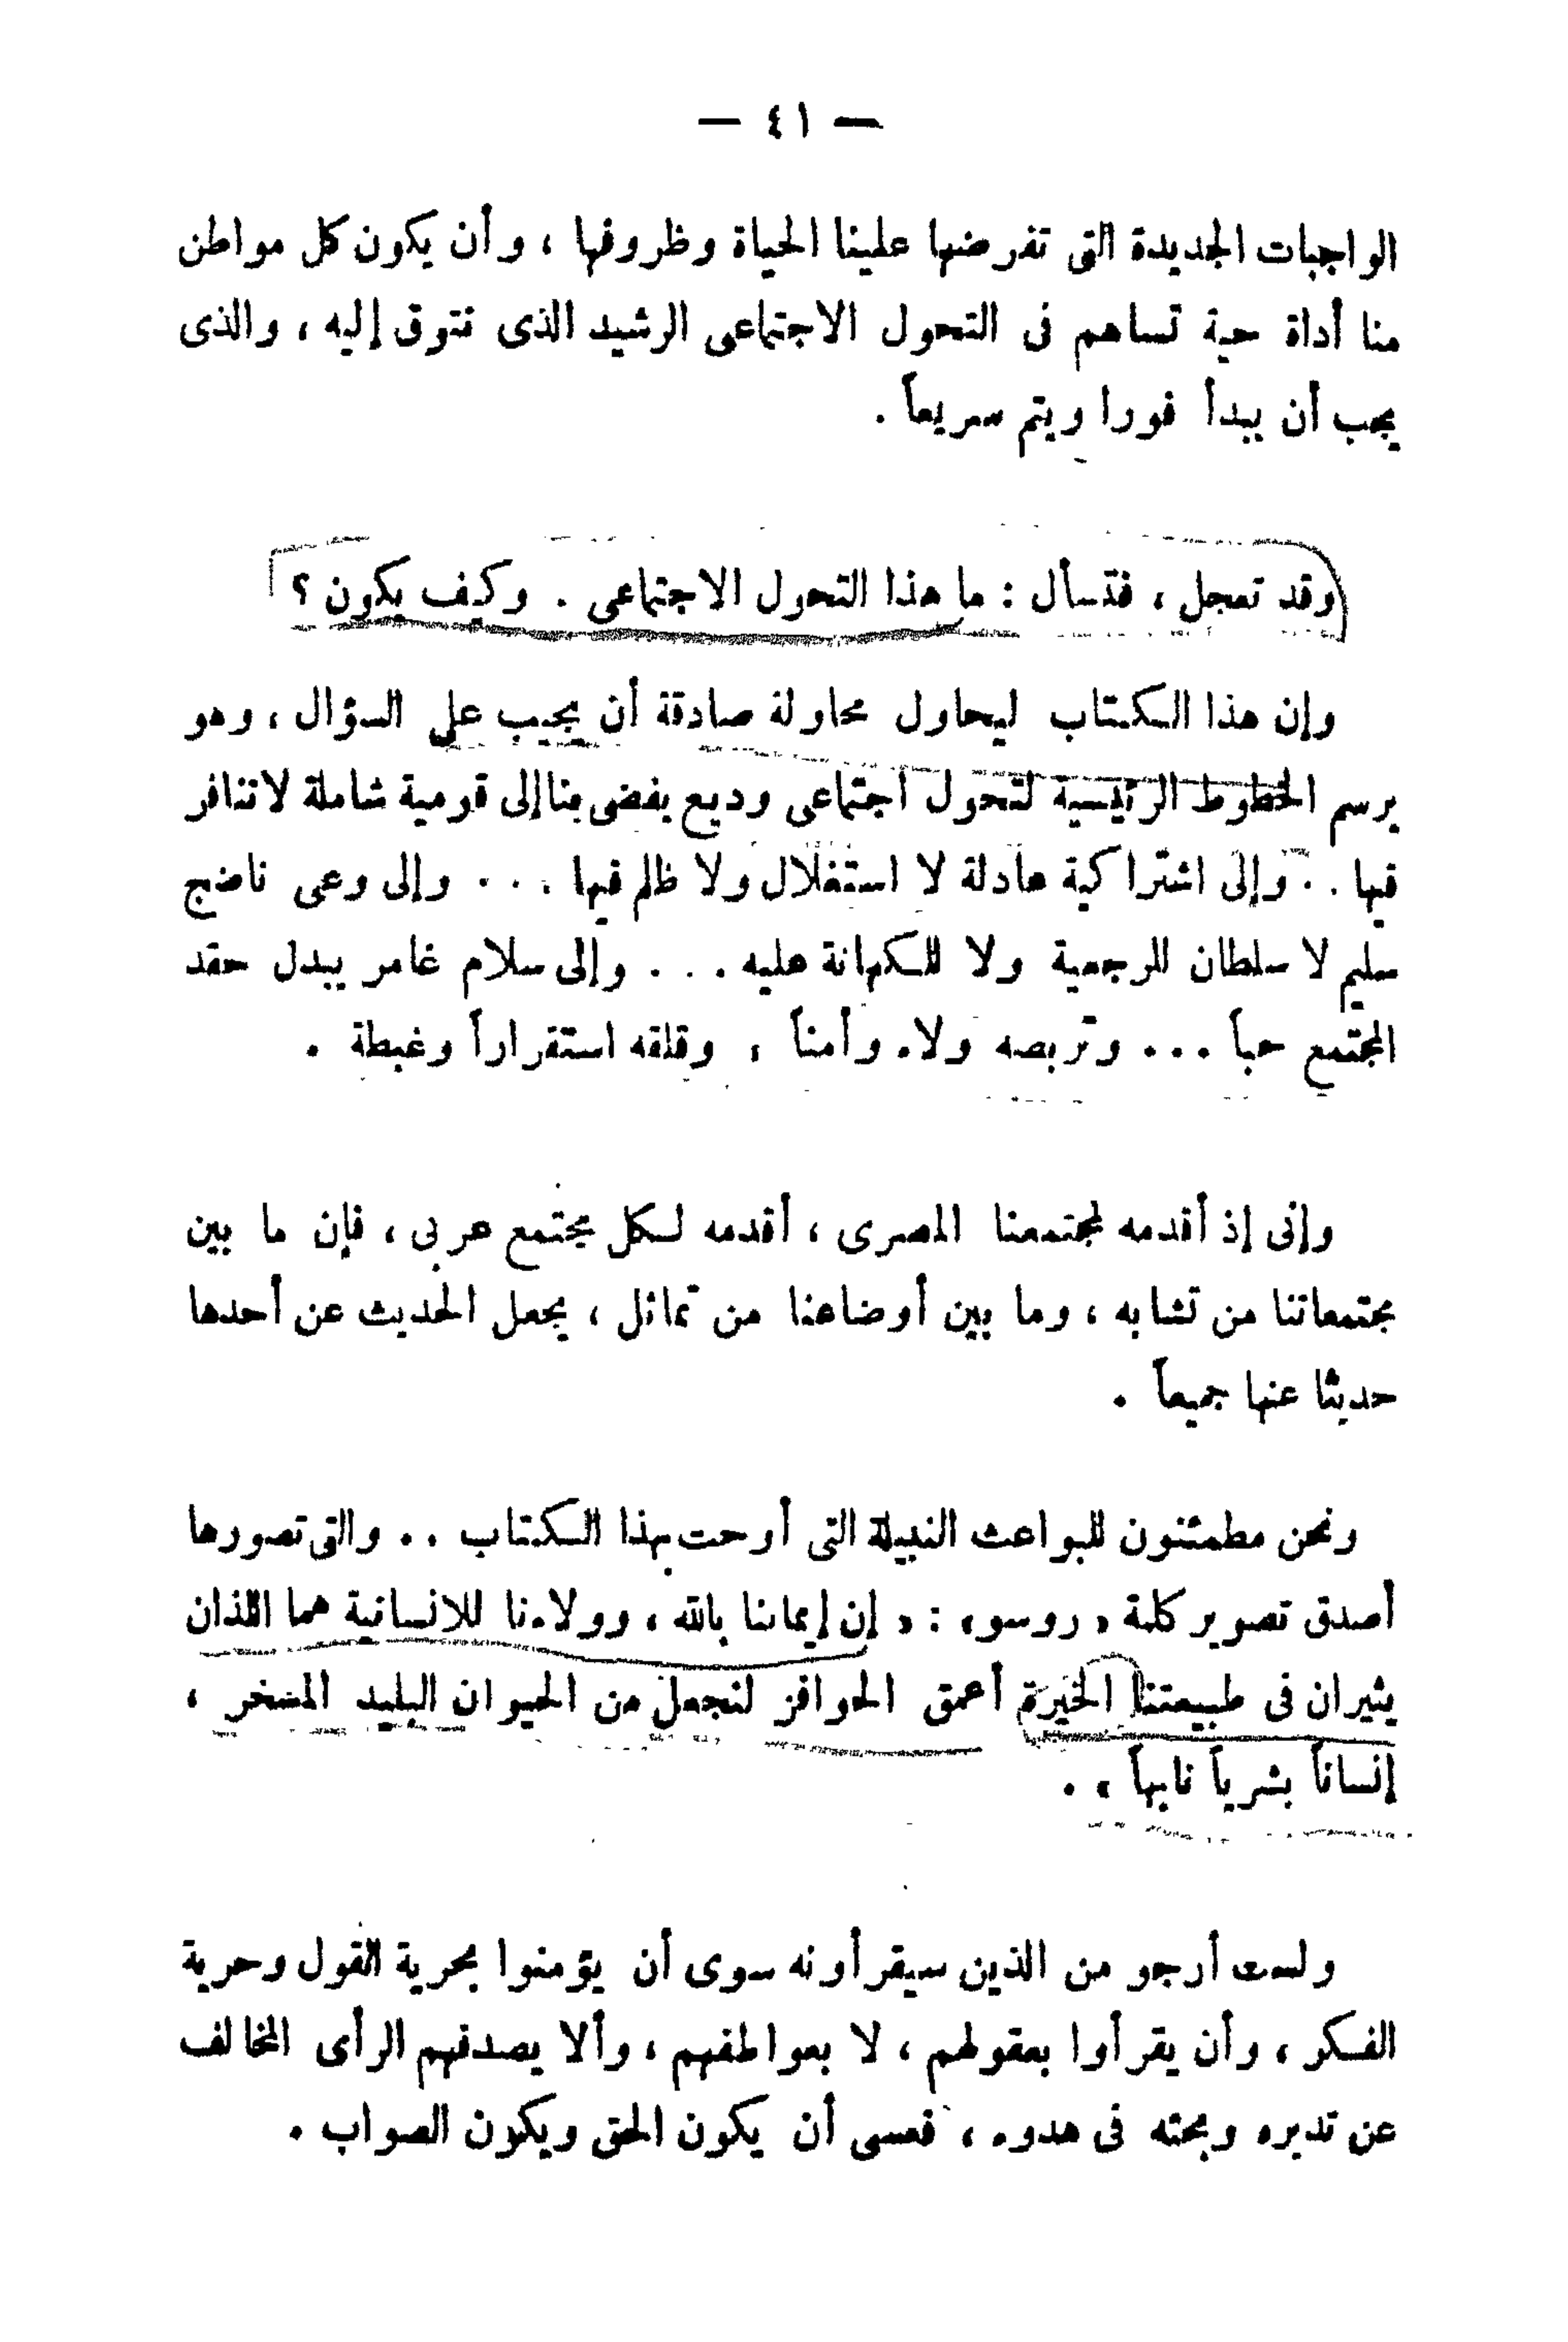 — ٤١ —
الواجبات الجديدة التى تفرضها علينا الحياة وظروفها ، وأن يكون كل مواطن
منا أداة حية تساهم فى التحول الاجتماعى الرشيد الذى نتوق إليه ، والذى
يجب أن يبدأ فورا ويتم سريعاً .
وقد تعجل ، فتسأل : ما هذا التحول الاجتماعى . وكيف يكون ؟
وإن هذا الكتاب ليحاول محاولة صادقة أن يجيب على السؤال ، وهو
يرسم الخطوط الرئيسية لتحول اجتماعى وديع يفضى بنا إلى قومية شاملة لا تنافر
فيها . . وإلى اشتراكية عادلة لا استغلال ولا ظلم فيها . . . وإلى وعى ناضج
سليم لا سلطان للرجعية ولا للكهانة عليه . . . وإلى سلام غامر يبدل حقد
المجتمع حباً . . . وتربصه ولاء وأمناً ، وقلقه استقراراً وغبطة .
وإنى إذ أقدمه لمجتمعنا المصرى ، أقدمه لكل مجتمع عربى ، فإن ما بين
مجتمعاتنا من تشابه ، وما بين أوضاعنا من تماثل ، يجعل الحديث عن أحدها
حديثا عنها جميعاً .
ونحن مطمئنون للبواعث النبيلة التى أوحت بهذا الكتاب . . والتى تصورها
أصدق تصوير كلمة « روسو » : « إن إيماننا بالله ، وولاءنا للانسانية هما اللذان
يثيران فى طبيعتنا الخيرة أعمق الحوافز لنجعل من الحيوان البليد المسخر ،
إنساناً بشرياً نابهاً » .
ولست أرجو من الذين سيقرأونه سوى أن يؤمنوا بحرية القول وحرية
الفكر ، وأن يقرأوا بعقولهم ، لا بعواطفهم ، وألا يصدفهم الرأى المخالف
عن تدبره وبحثه فى هدوء ، فعسى أن يكون الحق ويكون الصواب .